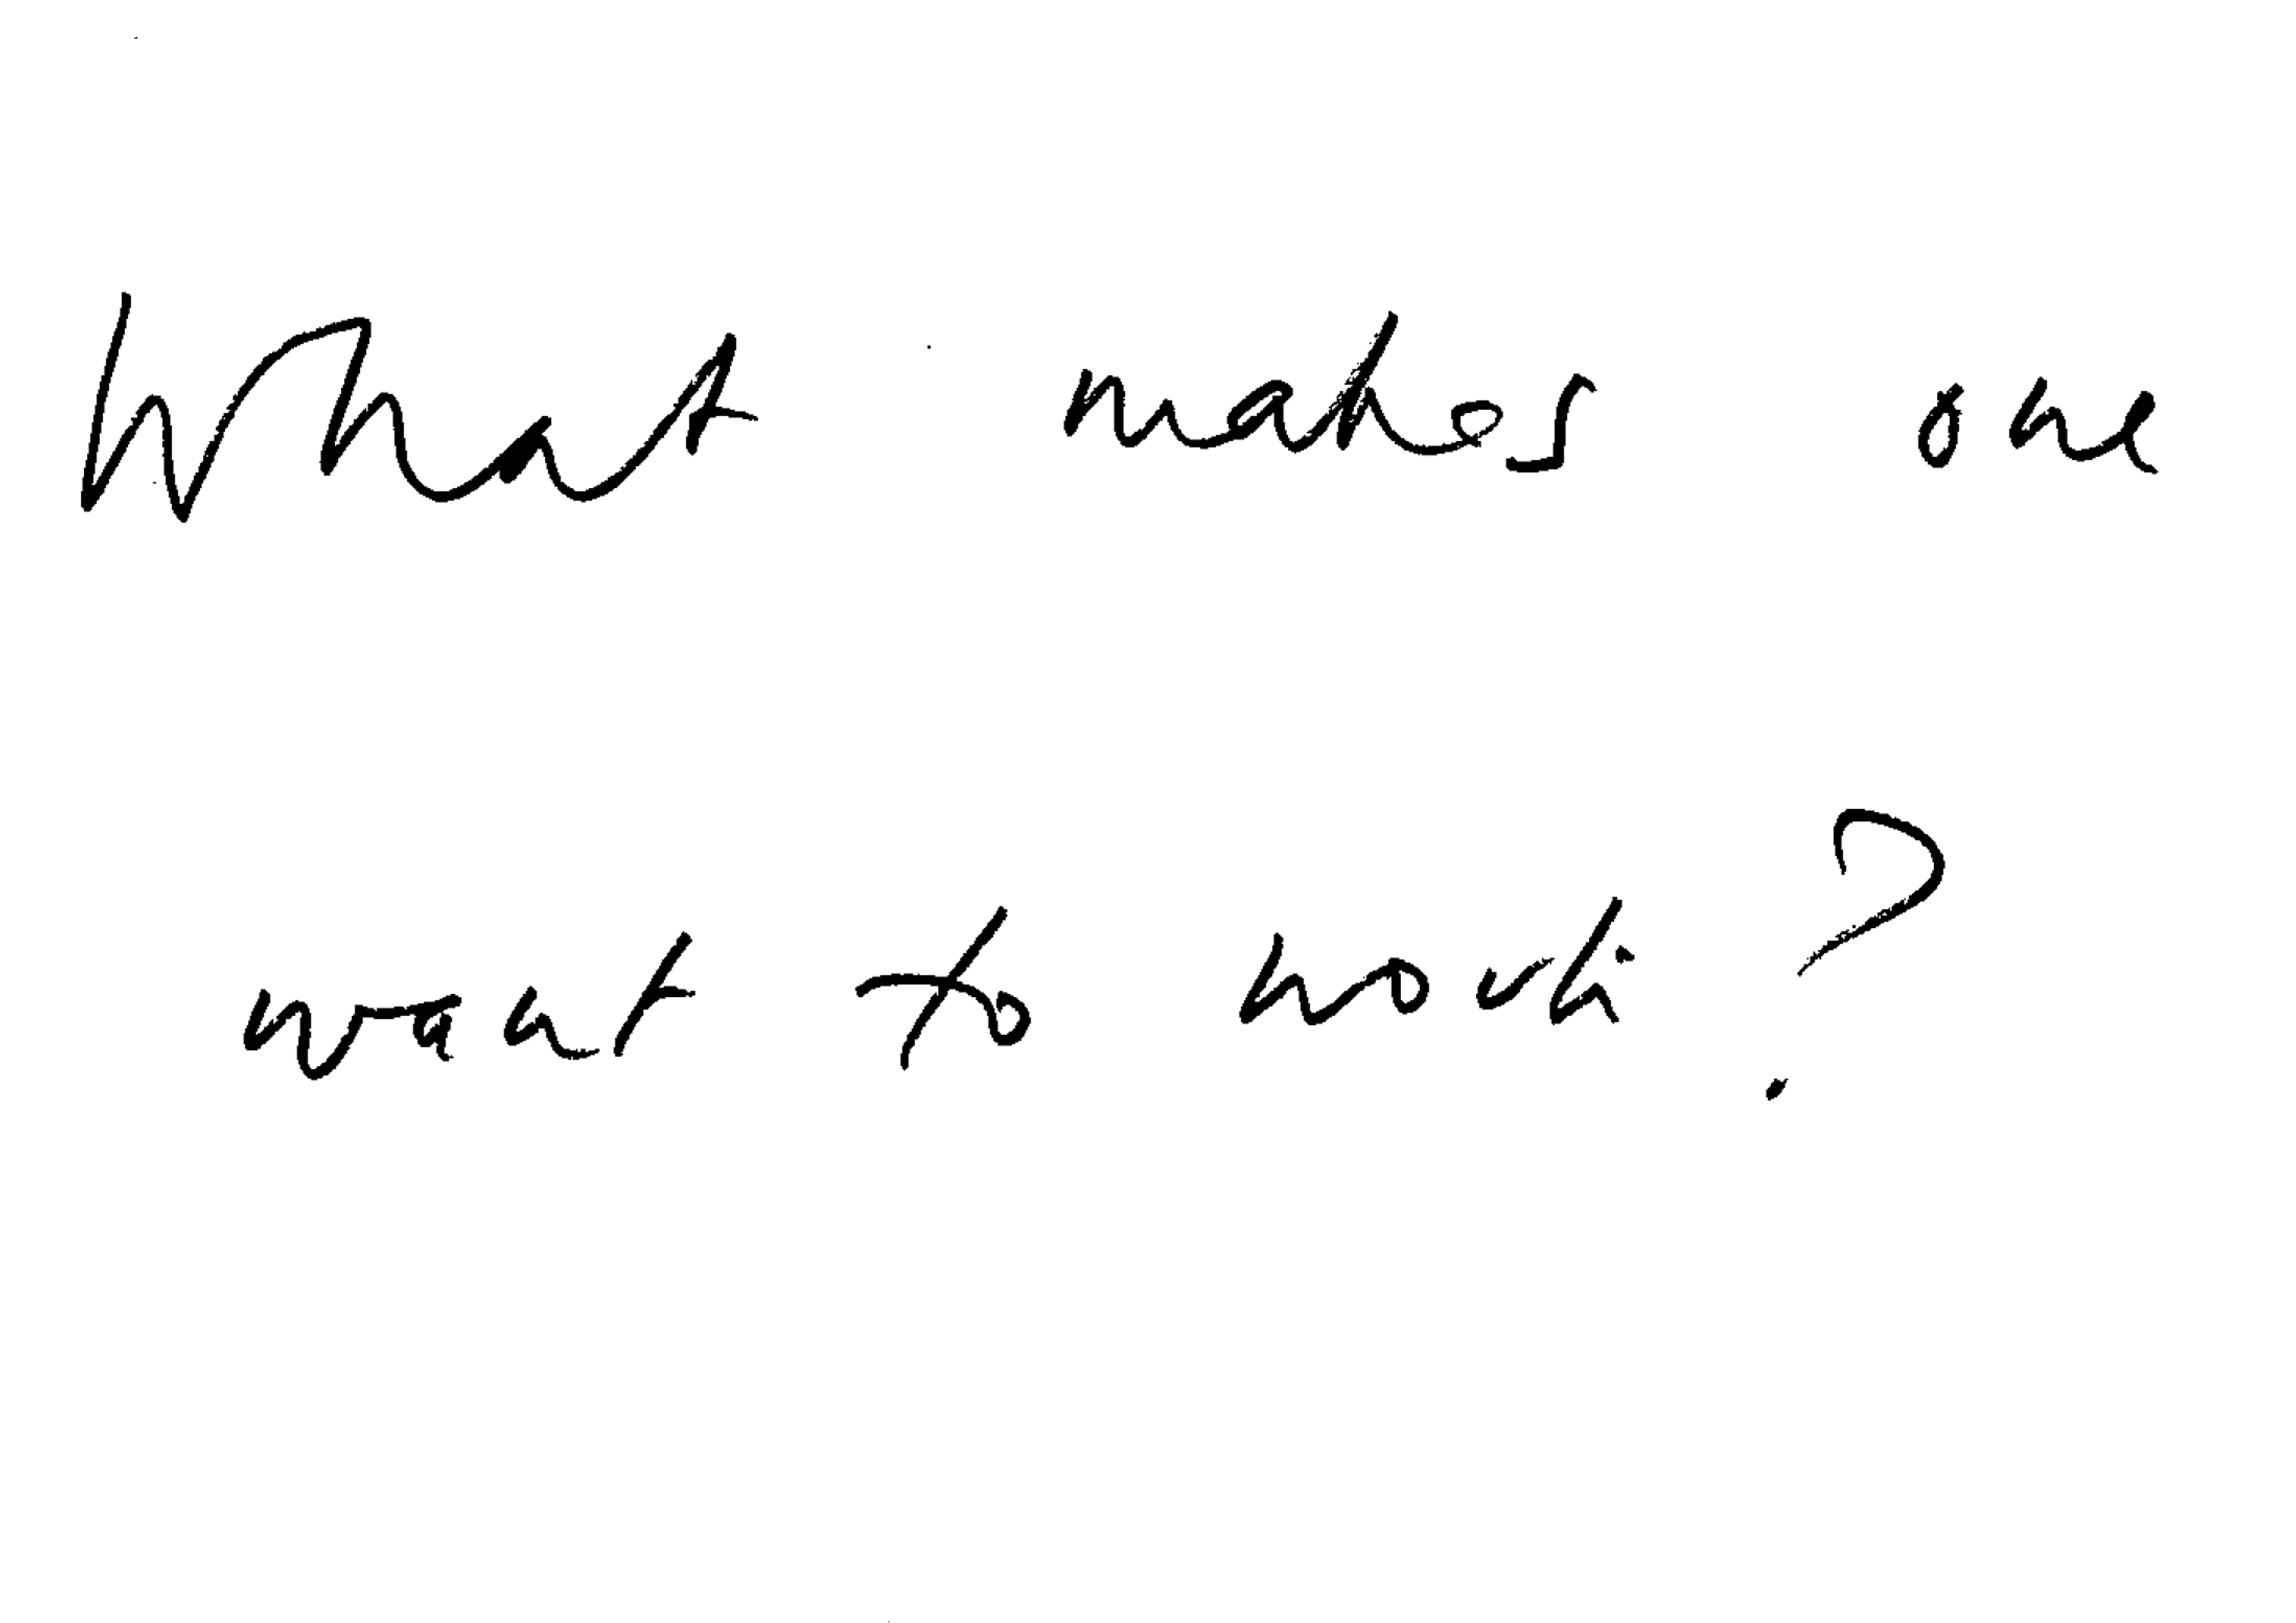 What makes one
want to work?